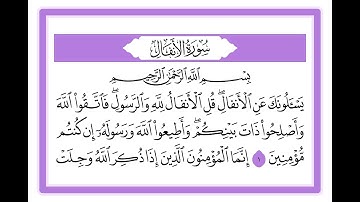 سُورَةُ الأَنفَالِ
بِسْمِ اللَّهِ الرَّحْمَٰنِ الرَّحِيمِ
يَسْـَٔلُونَكَ عَنِ الْأَنفَالِ ۖ قُلِ الْأَنفَالُ لِلَّهِ وَالرَّسُولِ ۖ فَاتَّقُوا اللَّهَ
وَأَصْلِحُوا ذَاتَ بَيْنِكُمْ ۖ وَأَطِيعُوا اللَّهَ وَرَسُولَهُ إِن كُنتُم
مُّؤْمِنِينَ ١ إِنَّمَا الْمُؤْمِنُونَ الَّذِينَ إِذَا ذُكِرَ اللَّهُ وَجِلَتْ